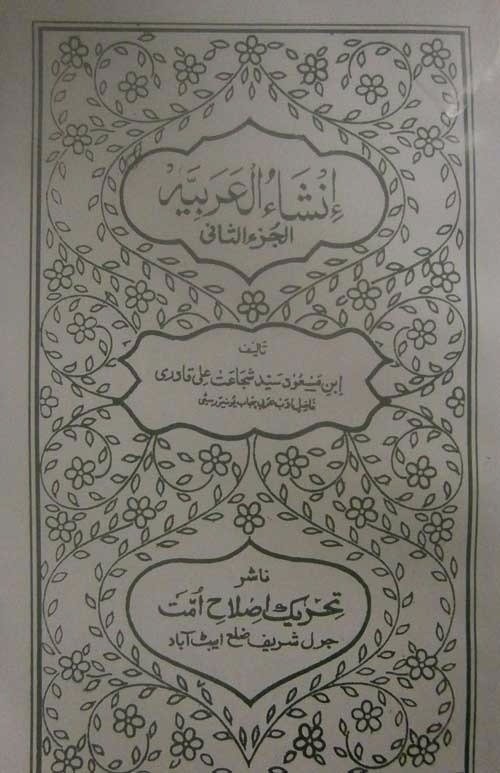 إنشاءُ العَرَبیَّہ
الجُزءُ الثانی
تالیف
اِبنِ مَسعُود سَیّد شجاعَت علی قادری
فاضل ادب عربی پنجاب یونیورسٹی
ناشر
تحریک اِصلاحِ اُمّت
جول شریف ضلع ایبٹ آباد